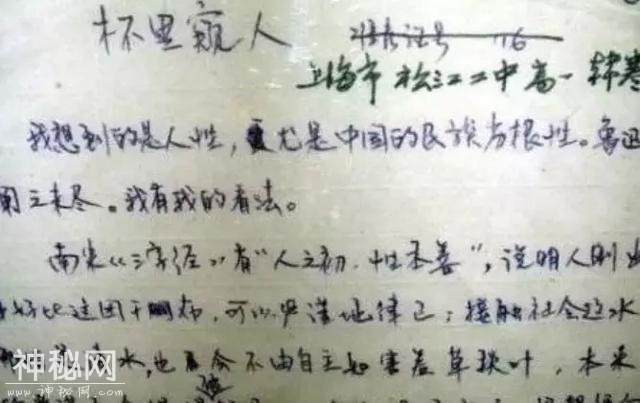 杯里窥人
准考证号 116
上海市松江二中高一 韩寒
我想到的是人性,尤是中国的民族劣根性。鲁迅
阐之未尽。我有我的看法。
南宋《三字经》有“人之初,性本善”,说明人刚出
好比这团干布,可以严谨地律己;接触社会这水
水,也会不由自主如害羞草叶,本来
神秘网
WWW.。COM